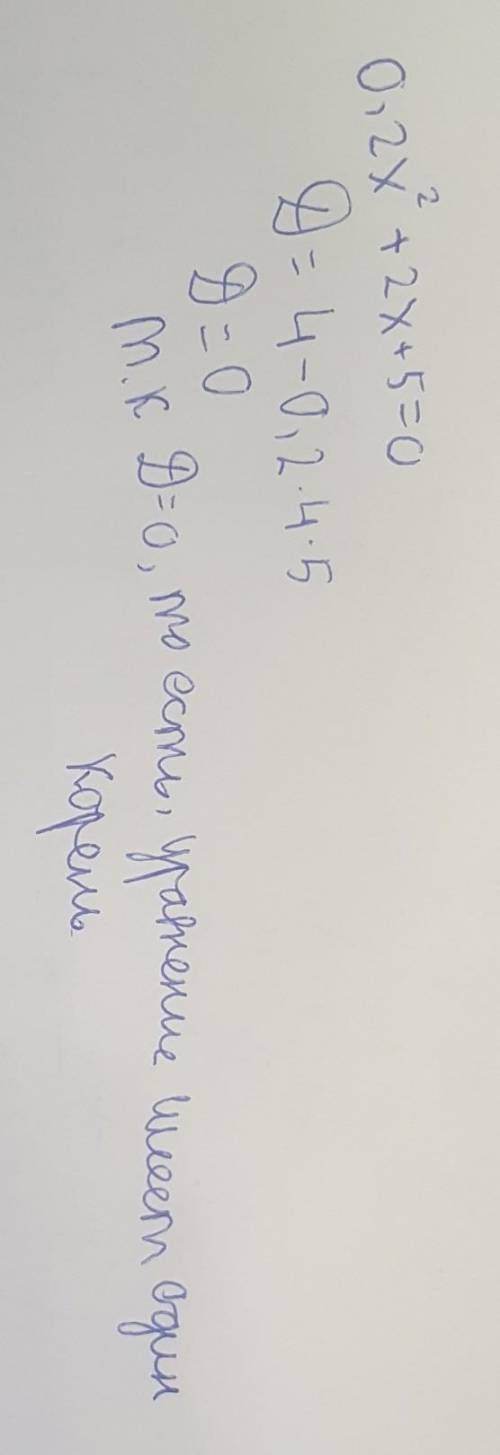 0,2x² + 2x + 5 = 0
D = 4 - 0,2·4·5
D = 0
т.к D = 0, то есть, уравнение имеет один
корень